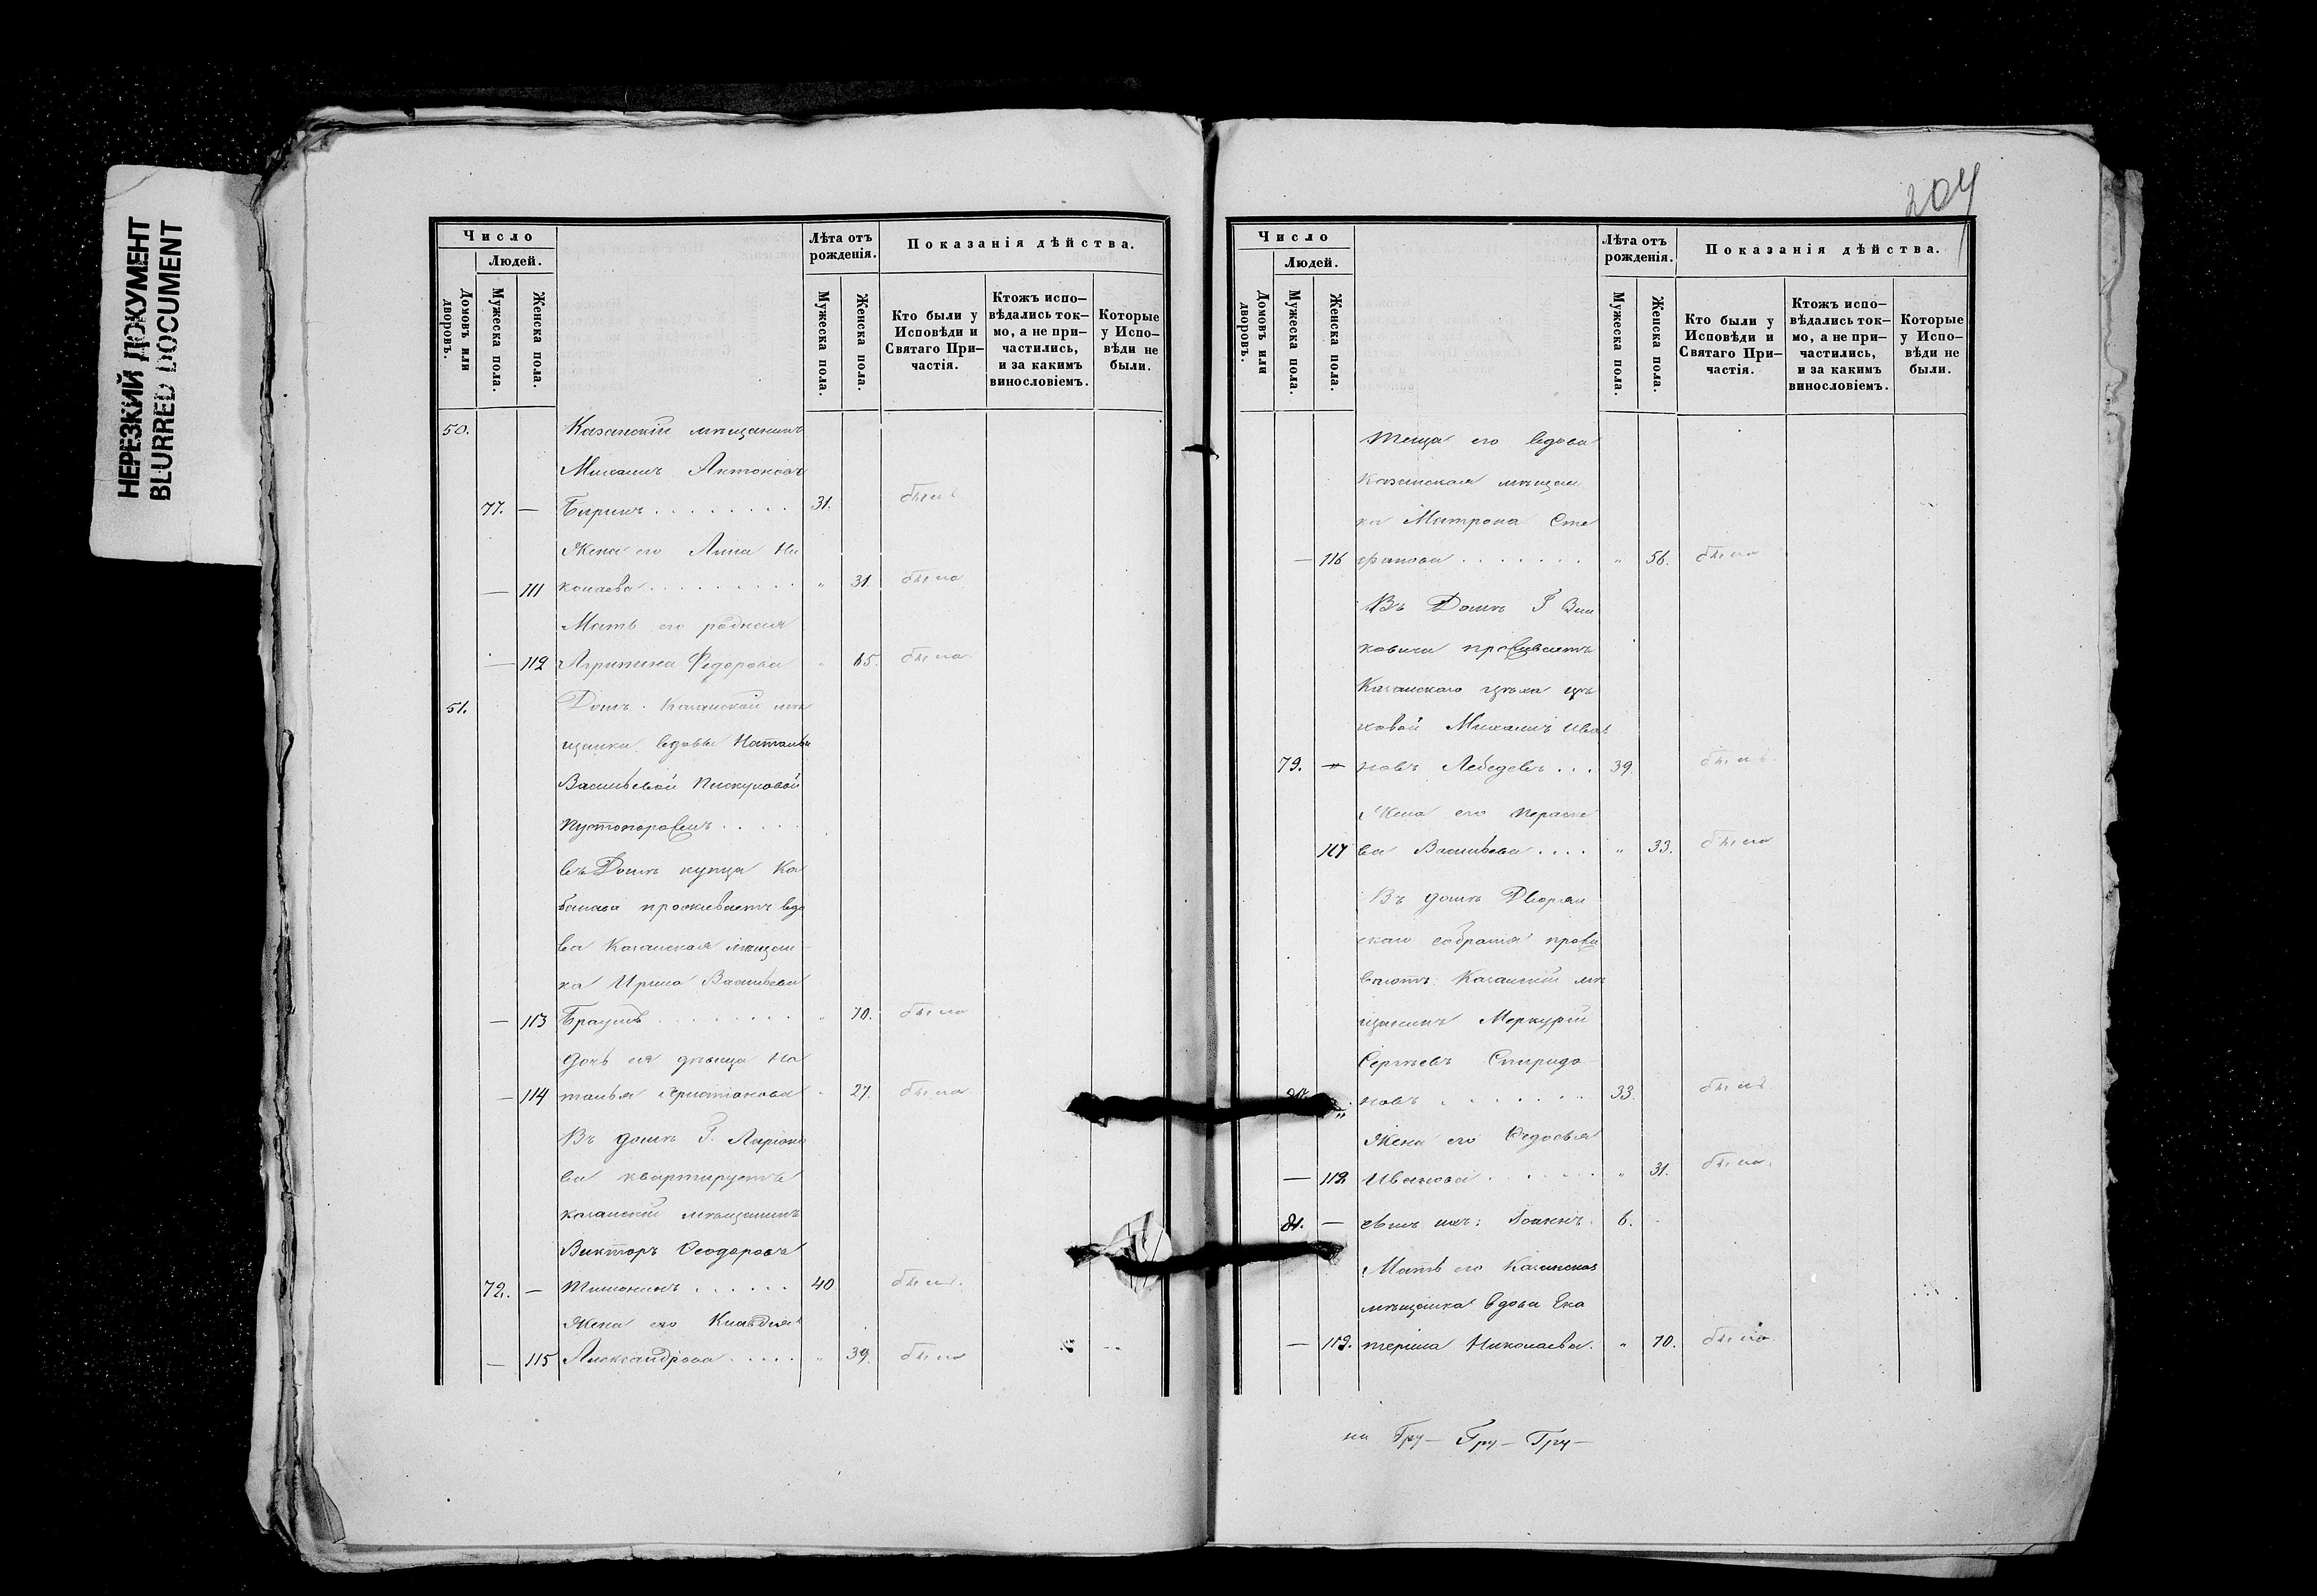 НЕРЕЗКИЙ ДОКУМЕНТ
BLURRED DOCUMENT
Число
Людей.
Домовъ или дворовъ.
Мужеска пола.
Женска пола.
Лѣта отъ рожденія.
Мужеска пола.
Женска пола.
Показанія дѣйства.
Кто были у Исповѣди и Святаго При–частія.
Ктожъ испо–вѣдались ток–мо, а не при–частились, и за какимъ винословіемъ.
Которые у Испо–вѣди не были.
50. Казанскій мѣщанинъ
Михаилъ Антоновъ
77. — 31. былъ
Жена его Анна Ни
— 111 колаева „ 31. была
Мать его родная
— 112 Агрипина Федорова „ 65. была
51. Домъ Казанской мѣ
щанки вдовы Натальи
Васильевой Пискуновой
въ Домѣ купца Ка
банова проживаетъ вдо
ва Казанская мѣщан
ка Ирина Васильева
— 113 „ 70. была
Дочь ея дѣвица На
— 114 талья „ 27. была
Въ домѣ Г. Ларіоно
ва квартируетъ
казанскій мѣщанинъ
Викторъ Феодоровъ
72. — 40 былъ.
Жена его Клавдія
— 115 Александрова „ 39. была
204
Число
Людей.
Домовъ или дворовъ.
Мужеска пола.
Женска пола.
Лѣта отъ рожденія.
Мужеска пола.
Женска пола.
Показанія дѣйства.
Кто были у Исповѣди и Святаго При–частія.
Ктожъ испо–вѣдались ток–мо, а не при–частились, и за какимъ винословіемъ.
Которые у Испо–вѣди не были.
Теща его вдова
Казанская мѣщан
ка Матрона Сте
— 116 фанова „ 56. была
Въ Домѣ Г
Казанскаго
Михаилъ Ива
79. — новъ Лебедевъ 39. былъ
Жена его Параске
117 ва Васильева „ 33. была
Въ домѣ Дворян
скаго собранія прожи
ваютъ Казанскій мѣ
щанинъ Меркурій
Сергѣевъ Спиридо
новъ 33. былъ
Жена его Федосья
— 118 Иванова „ 31. была.
81. — сынъ ихъ: 6.
Мать его Казанская
мѣщанка вдова Ека
— 119. терина Николаева. „ 70. была
на Гру– Гру– Гру–